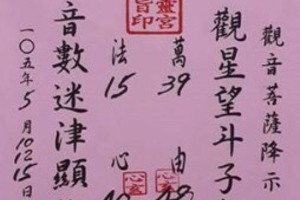 觀音菩薩降示
觀星望斗子
萬 39 由
法 15 心
音數迷津顯
一〇五年5月10.12.15日
靈宮
旨印
心玄
心玄